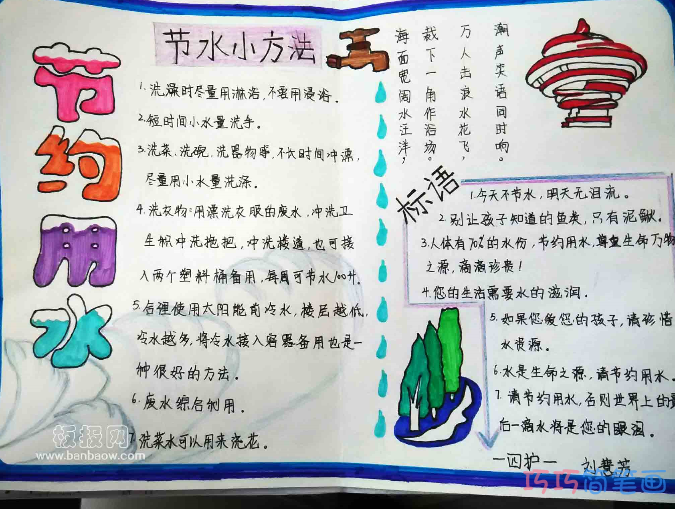 节约用水
节水小方法
1.洗澡时尽量用淋浴，不要用浸浴。
2.短时间小水量洗手。
3.洗菜、洗碗、洗器物等，不长时间冲漂，
尽量用小水量洗涤。
4.洗衣物：用漂洗衣服的废水，冲洗卫
生间冲洗拖把，冲洗楼道，也可接
入两个塑料桶备用，每周可节水100升。
5.后裡使用太阳能前冷水，楼层越低，
冷水越多，将冷水接入容器备用也是一
种很好的方法。
6.废水综合利用。
7.洗菜水可以用来浇花。
潮声笑语同时响。
万人击浪水花飞，
裁下一角作浴场。
海面宽阔水汪洋，
标语
1.今天不节水，明天无泪流。
2.别让孩子知道的鱼类，只有泥鳅。
3.人体有70%的水份，节约用水，尊重生命万物
之源，滴滴珍贵！
4.您的生活需要水的滋润。
5.如果您爱您的孩子，请珍惜
水资源。
6.水是生命之源，请节约用水。
7.请节约用水，否则世界上的最
后一滴水将是您的眼泪。
一四护一
板报网
www.banbaow.com
巧巧简笔画